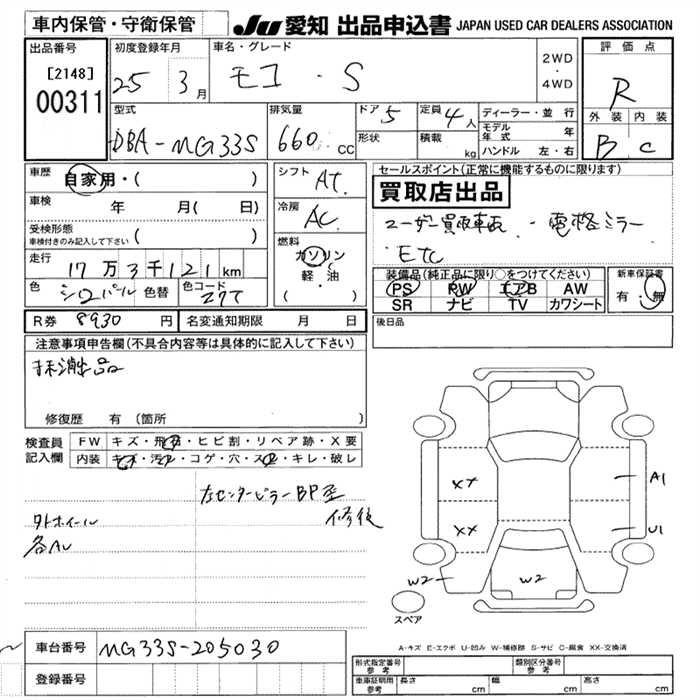 車内保管・守衛保管 JU 愛知 出品申込書 JAPAN USED CAR DEALERS ASSOCIATION
出品番号 初度登録年月 車名・グレード 評価点
[2148] 25 3月 モコ・S 2WD・4WD R
00311
型式 排気量 ドア 5 定員 4人 ディーラー・並行 外装 内装
DBA-MG33S 660 CC 形状 積載 kg モデル年式 年 B C
ハンドル 左・右
車歴 自家用・( ) シフト AT セールスポイント(正常に機能するものに限ります)
車検 年 月( 日) 冷房 AC 買取店出品
受検形態 ( ) ユーザー買取車両・電格ミラー
車検付きのみ記入して下さい
ETC
走行 17万3千121km 燃料 ガソリン・軽・油 ( )
色 シロパール 色替 色コード Z7T
装備品(純正品に限り○をつけてください) 新車保証書
PS PW エアB AW 有・無
SR ナビ TV カワシート
R券 8930 円 名変通知期限 月 日 後日品
注意事項申告欄(不具合内容等は具体的に記入して下さい)
抹消出品
修復歴 有 (箇所 )
検査員記入欄 FW キズ・飛石・ヒビ割・リペア跡・X要
内装 キズ・汚レ・コゲ・穴・スレ・キレ・破レ
左センターピラーBP歪
修後
外ホイール
各AU
XX A1
XX U1
W2 W2
スペア
A-キズ E-エクボ U-凹み W-補修跡 S-サビ C-腐食 XX-交換済
車台番号 MG33S-205030
登録番号
形式指定番号 参考 類別区分番号 参考
車庫証明用 参考 長さ cm 幅 cm 高さ cm